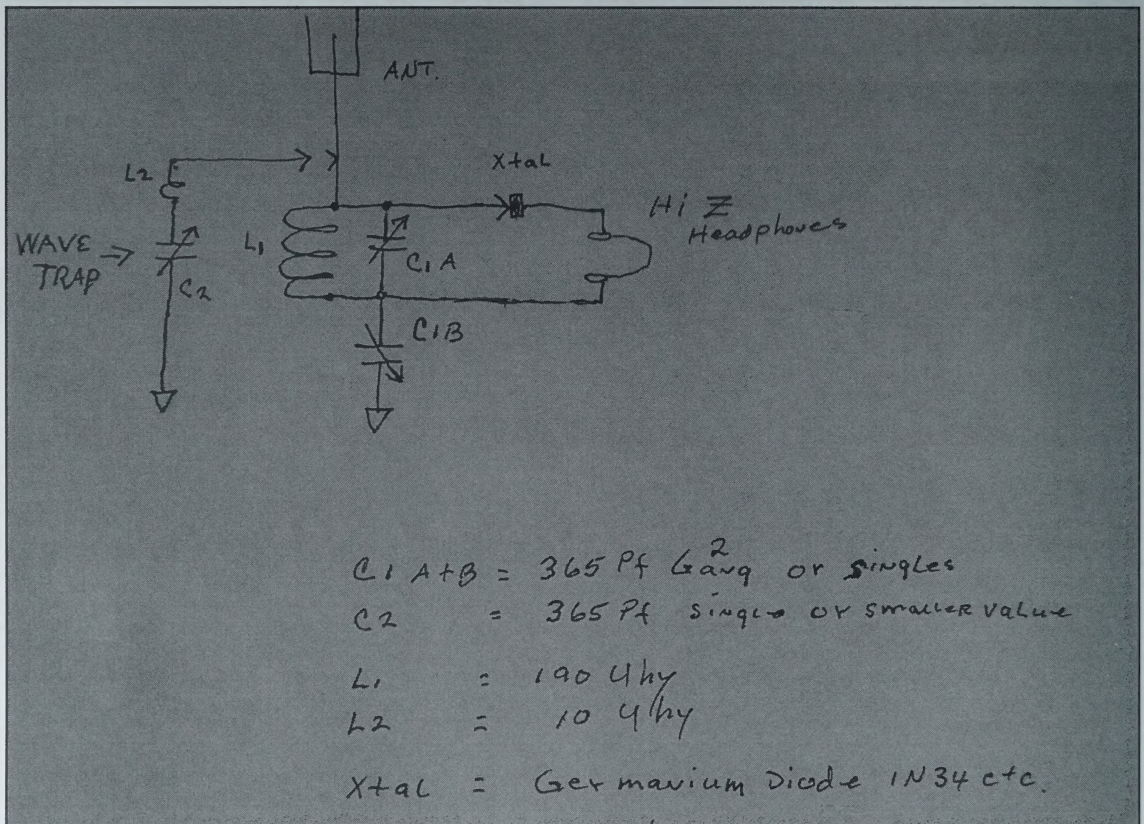 ANT.
L2
Xtal
Hi Z
Headphones
WAVE
TRAP
C2
L1
C1A
C1B
C1 A+B = 365 Pf 2 Gang or singles
C2 = 365 Pf single or smaller value
L1 = 190 Uhy
L2 = 10 Uhy
Xtal = Germanium Diode 1N34 etc.